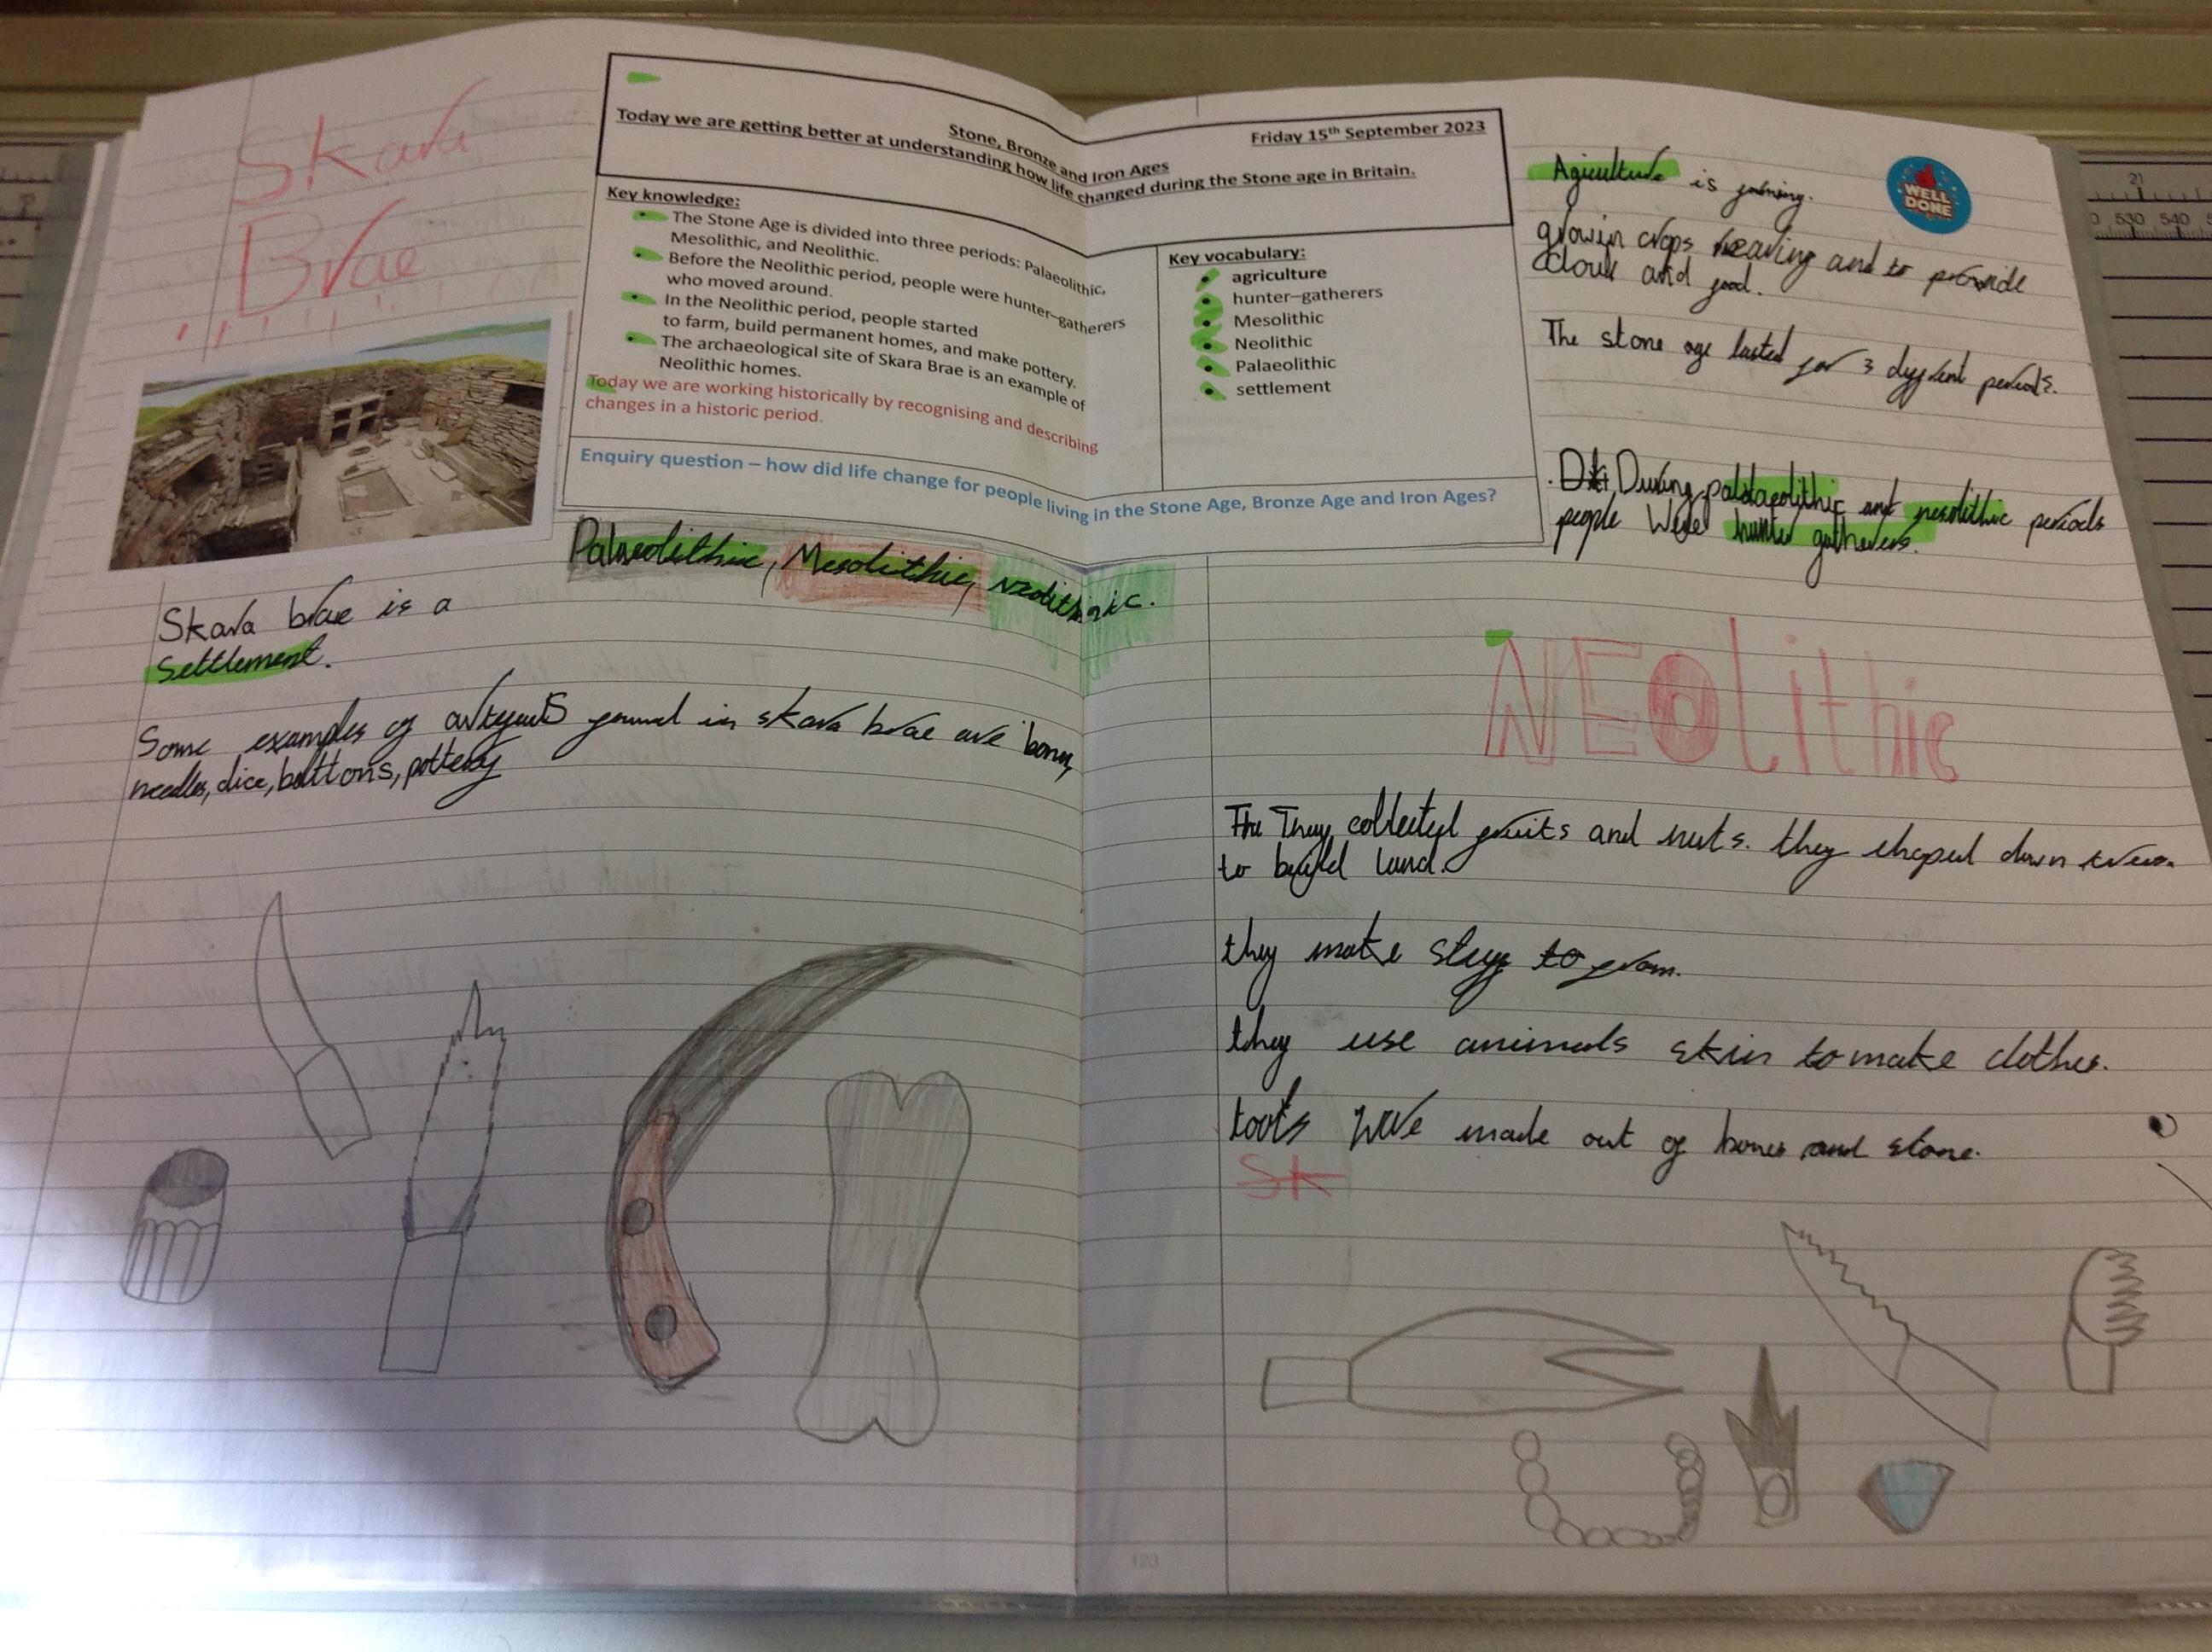 Skara
Brae
Stone, Bronze and Iron Ages
Friday 15th September 2023
Today we are getting better at understanding how life changed during the Stone age in Britain.
Key knowledge:
The Stone Age is divided into three periods: Palaeolithic,
Mesolithic, and Neolithic.
Before the Neolithic period, people were hunter–gatherers
who moved around.
In the Neolithic period, people started
to farm, build permanent homes, and make pottery.
The archaeological site of Skara Brae is an example of
Neolithic homes.
Today we are working historically by recognising and describing
changes in a historic period.
Key vocabulary:
agriculture
hunter–gatherers
Mesolithic
Neolithic
Palaeolithic
settlement
Enquiry question – how did life change for people living in the Stone Age, Bronze Age and Iron Ages?
Palaeolithic, Mesolithic,
Skara brae is a
Settlement.
Some examples of found in skara brae are
needles, dice, buttons, pottery
WELL
DONE
Agiculture is
growin crops and to provide
and food.
The stone age lasted for 3 periods.
During and mesolithic periods
people were hunter gatherers.
NEolithic
They collected fruits and nuts. they down
to build land.
they make to
they use animals skin to make clothes.
tools were made out of bones and stone.
Sk
123
21
530 540